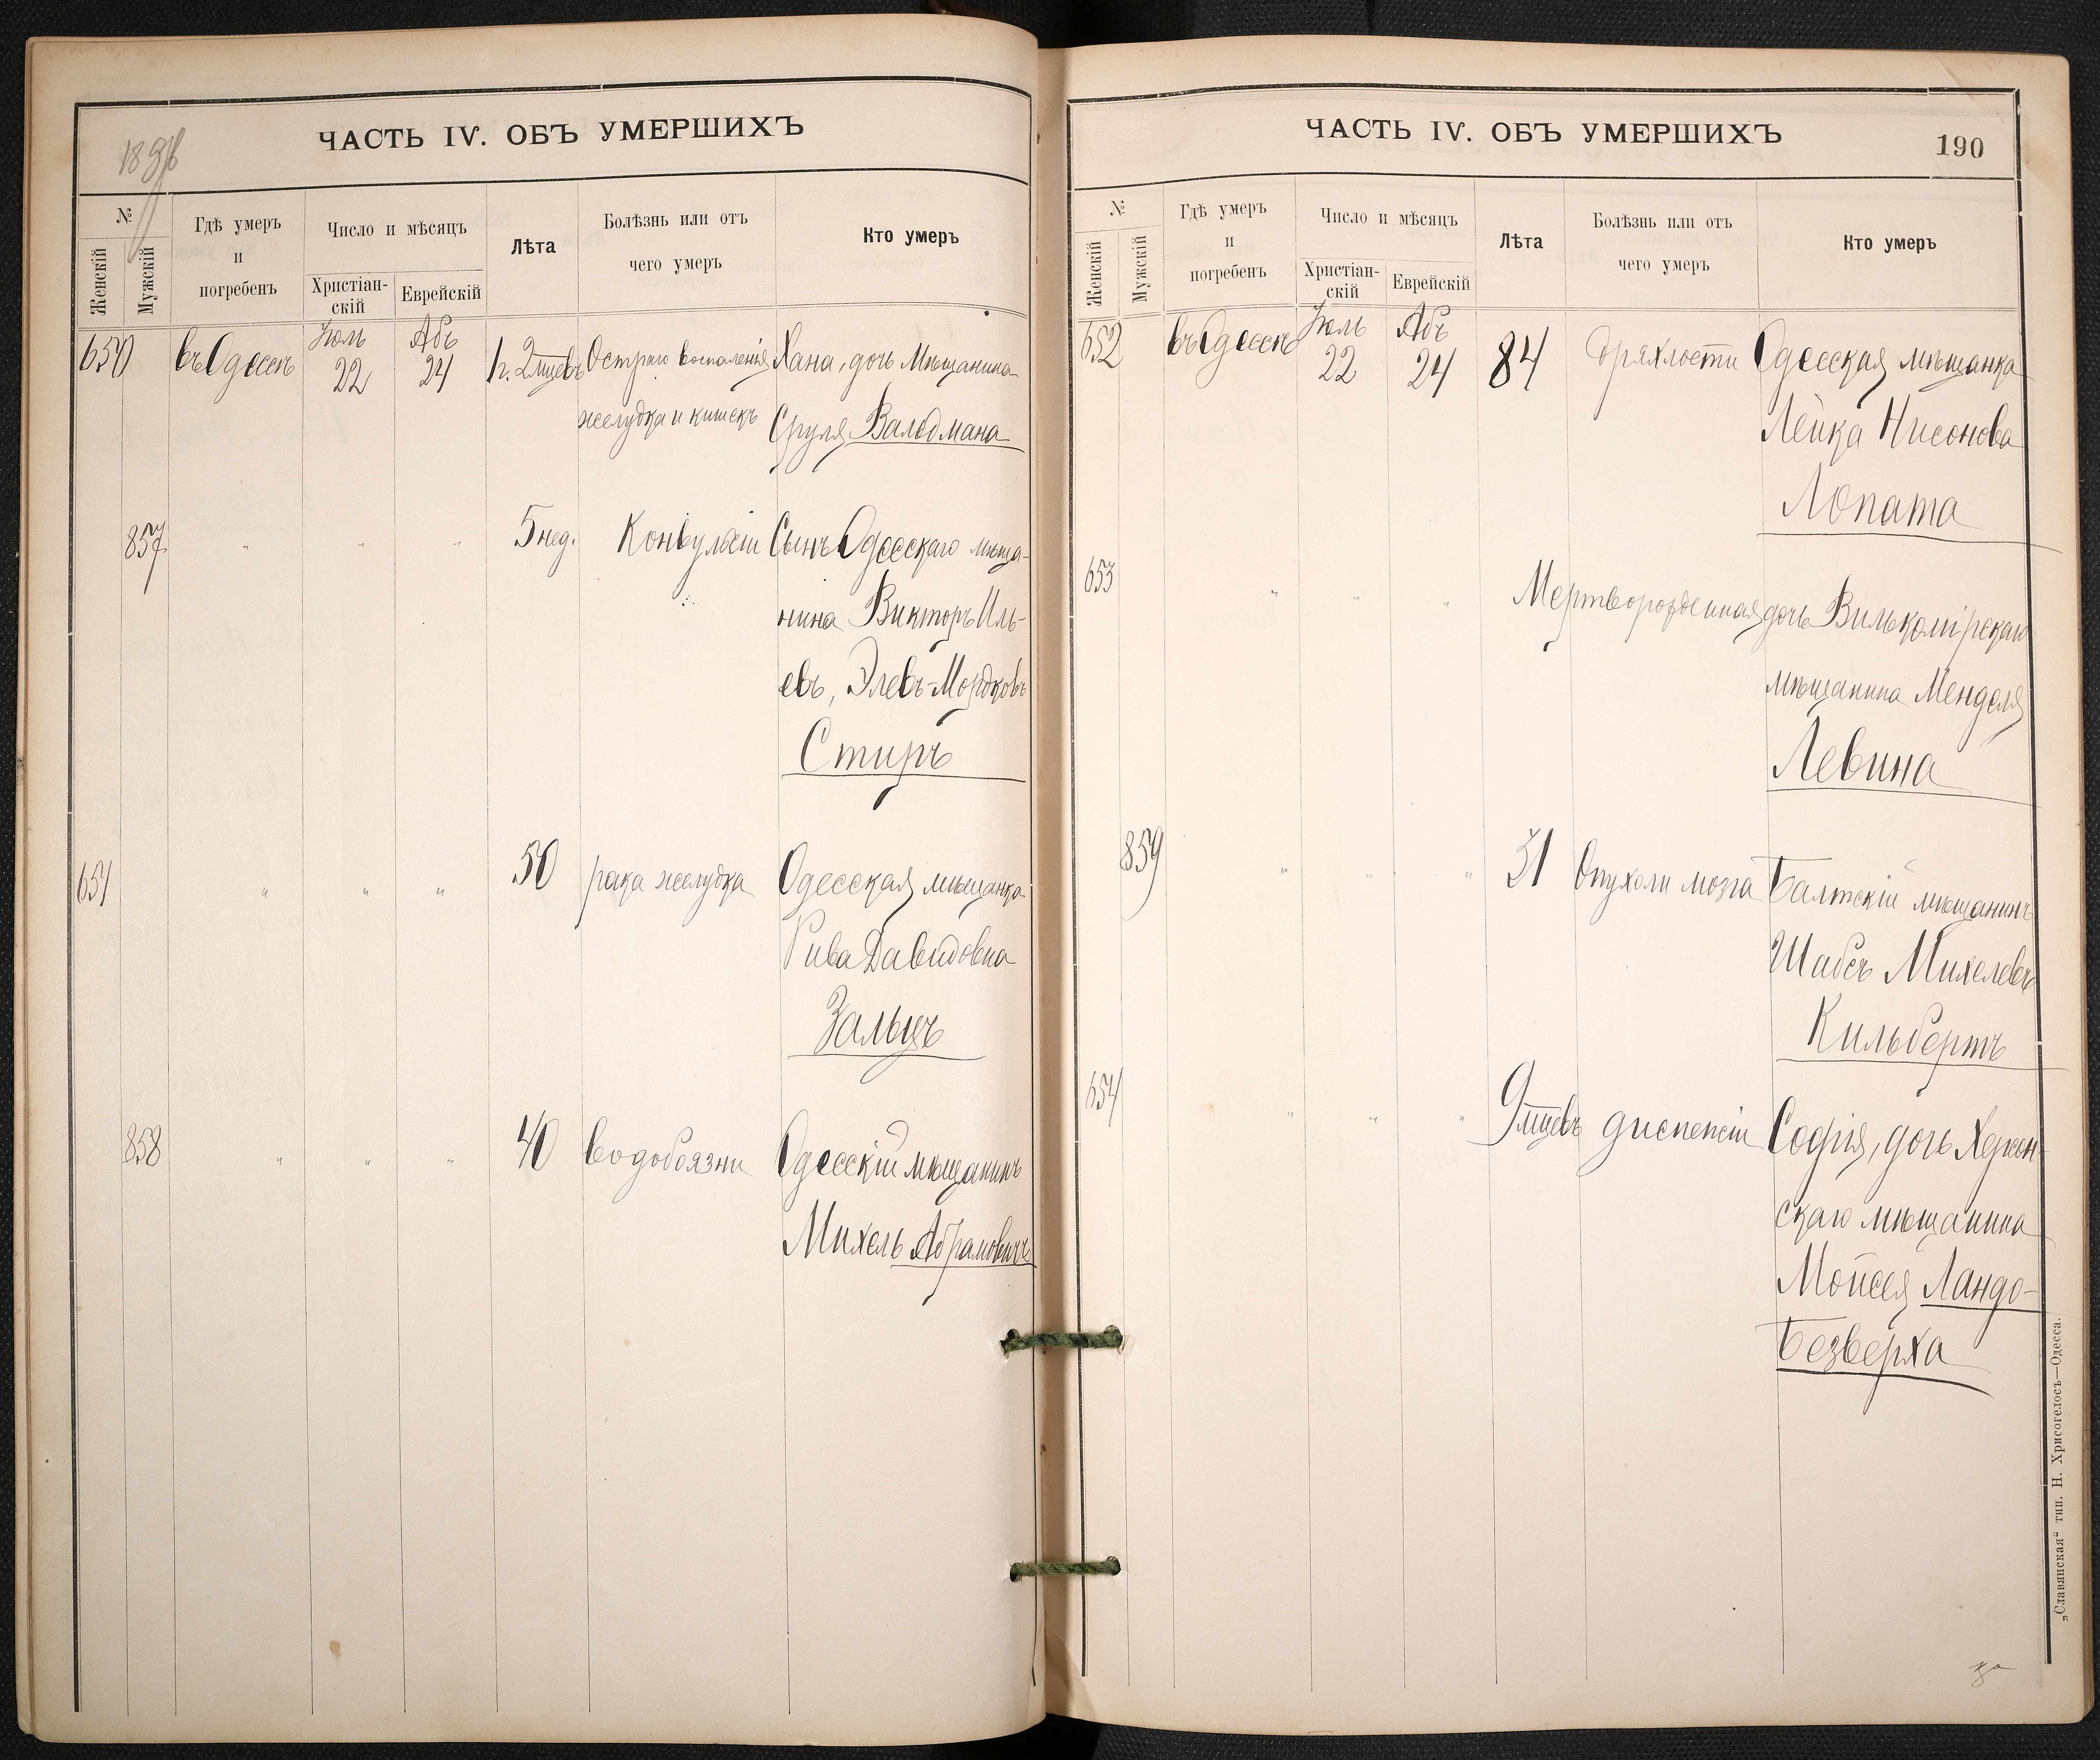 1896
ЧАСТЬ IV. ОБЪ УМЕРШИХЪ
№
Женскій
Мужскій
Гдѣ умеръ
и
погребенъ
Число и мѣсяцъ
Христіан-
скій
Еврейскій
Лѣта
Болѣзнь или отъ
чего умеръ
Кто умеръ
650 въ Одессѣ Іюль 22 Абъ 24 1г. 2 мцевъ Остраго воспаленія Хана, дочь Мѣщанина
желудка и кишекъ Сруля Вальдмана
857 " " " 5 нед. Конвульсіи Сынъ Одесскаго мѣща-
нина Викторъ Иль-
евъ, Элевъ-Мордковъ
Стиръ
651 " " " 50 рака желудка Одесская мѣщанка
Рива Давидовна
Зальцъ
858 " " " 40 водобоязни Одесскій мѣщанинъ
Михель Абрамовичъ
ЧАСТЬ IV. ОБЪ УМЕРШИХЪ
190
№
Женскій
Мужскій
Гдѣ умеръ
и
погребенъ
Число и мѣсяцъ
Христіан-
скій
Еврейскій
Лѣта
Болѣзнь или отъ
чего умеръ
Кто умеръ
652 въ Одессѣ Іюль 22 Абъ 24 84 дряхлости Одесская мѣщанка
Лейка Нисонова
Лопата
653 " " " Мертворожденная дочь Вилькомірскаго
мѣщанина Менделя
Левина
859 " " " 31 Опухоли мозга Балтскій мѣщанинъ
Шабсъ Михелевъ
Кильбертъ
654 " " " 9 мцевъ диспепсіи Софія, дочь Херсон-
скаго мѣщанина
Мойсея Ландо-
Безверха
„Славянская“ тип. Н. Хрисогелосъ—Одесса.